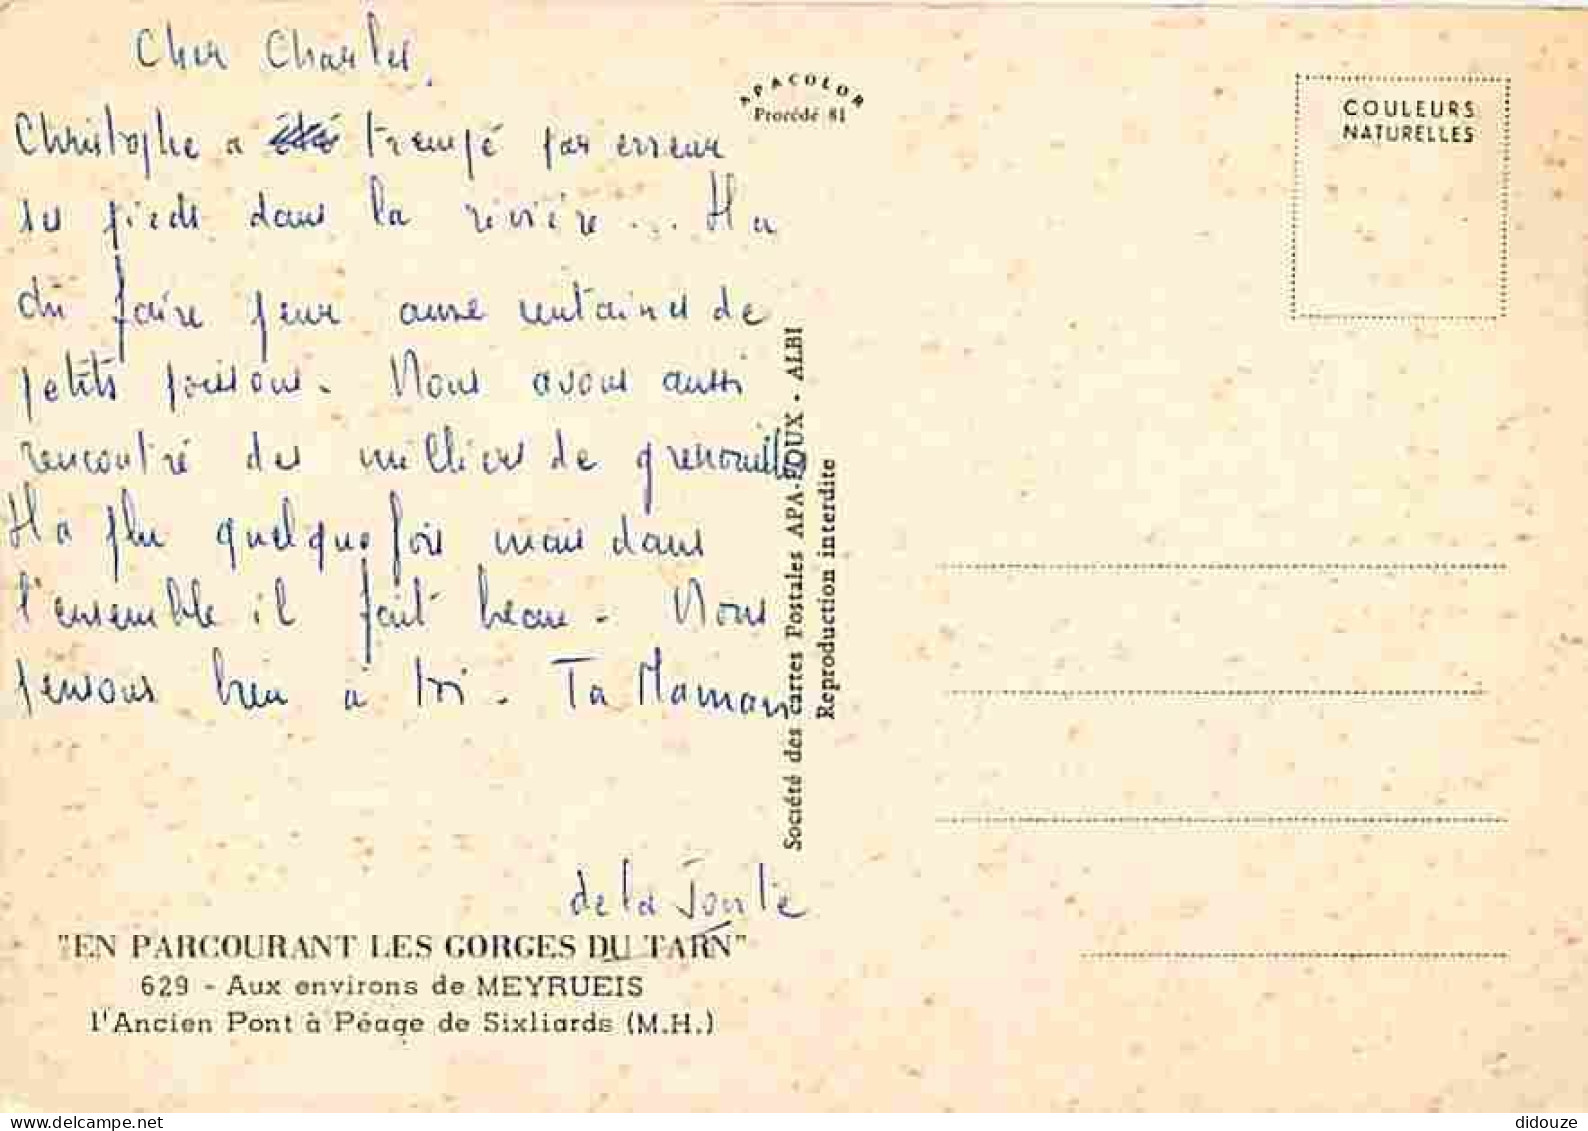 Cher Charles,
Christophe a été trempé par erreur
ses pieds dans la rivière... Il a
dû faire peur aux centaines de
petits poissons. Nous avons aussi
rencontré des milliers de grenouilles
Il a plu quelquefois mais dans
l'ensemble il fait beau. Nous
pensons bien à toi. Ta Maman
de la Jonte
"EN PARCOURANT LES GORGES DU TARN"
629 - Aux environs de MEYRUEIS
l'Ancien Pont à Péage de Sixliards (M.H.)
APACOLOR
Procédé 81
Société des cartes Postales APA-POUX - ALBI
Reproduction interdite
COULEURS
NATURELLES
delcampe.net
didouze